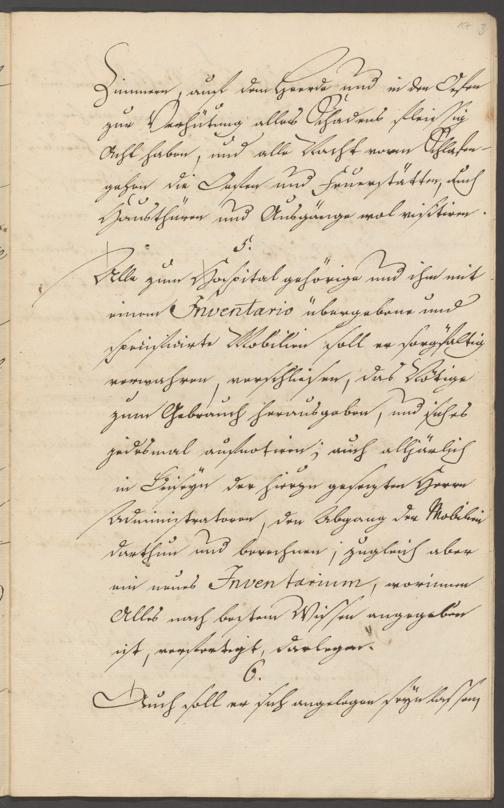 17 3
Zimmern, auf dem Heerde und in den Oefen
zur Verhütung alles Schadens fleissig
Acht haben, und alle Nacht vorm Schlafen-
gehen die Oefen und Feuerstätten, auch
Hausthüren und Ausgänge wol visitiren.
5.
Alle zum Hospital gehörige und ihm mit
einem Inventario übergebene und
specificirte Mobilien soll er sorgfältig
verwahren, verschliesen, das Nötige
zum Gebrauch herausgeben, und sich es
jedesmal aufnotiren; auch alljärlich
in Beiseyn der hierzu gesezten Herrn
Administratoren, den Abgang der Mobilien
darthun und berechnen; zugleich aber
ein neues Inventarium, worinnen
Alles nach bestem Wissen angegeben
ist, verfertigt, darlegen.
6.
Auch soll er sich angelegen seyn lassen,